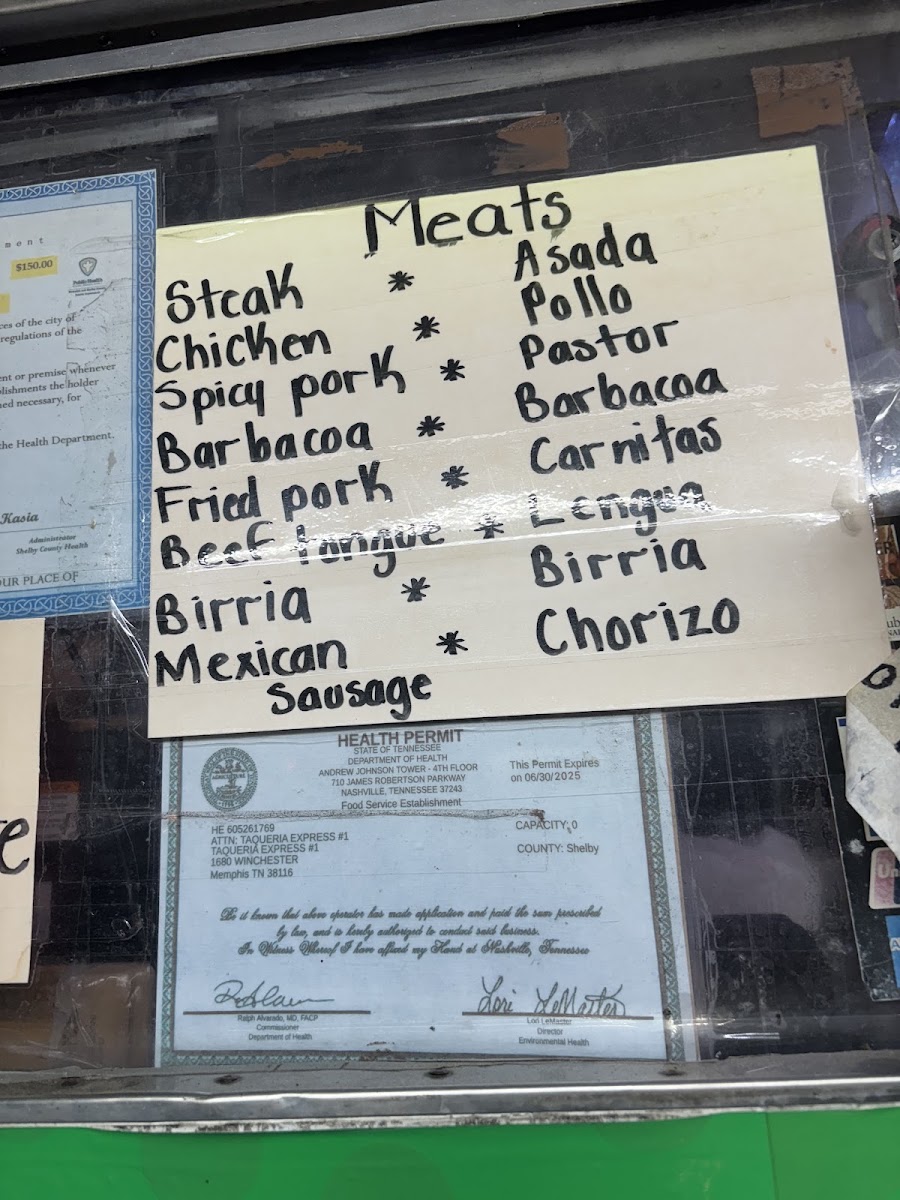 Meats
Steak * Asada
Chicken * Pollo
Spicy pork * Pastor
Barbacoa * Barbacoa
Fried pork * Carnitas
Beef tongue * Lengua
Birria * Birria
Mexican * Chorizo
Sausage
ment
$150.00
ces of the city of
regulations of the
ent or premise whenever
blishments the holder
ned necessary, for
the Health Department.
Kasia
Administrator
Shelby County Health
OUR PLACE OF
HEALTH PERMIT
STATE OF TENNESSEE
DEPARTMENT OF HEALTH
ANDREW JOHNSON TOWER - 4TH FLOOR
710 JAMES ROBERTSON PARKWAY
NASHVILLE, TENNESSEE 37243
Food Service Establishment
This Permit Expires
on 06/30/2025
HE 605261769
ATTN: TAQUERIA EXPRESS #1
TAQUERIA EXPRESS #1
1680 WINCHESTER
Memphis TN 38116
CAPACITY: 0
COUNTY: Shelby
Be it known that above operator has made application and paid the sum prescribed
by law, and is hereby authorized to conduct said business.
In Witness Whereof I have affixed my Hand at Nashville, Tennessee
Ralph Alvarado, MD, FACP
Commissioner
Department of Health
Lori LeMaster
Lori LeMaster
Director
Environmental Health
e